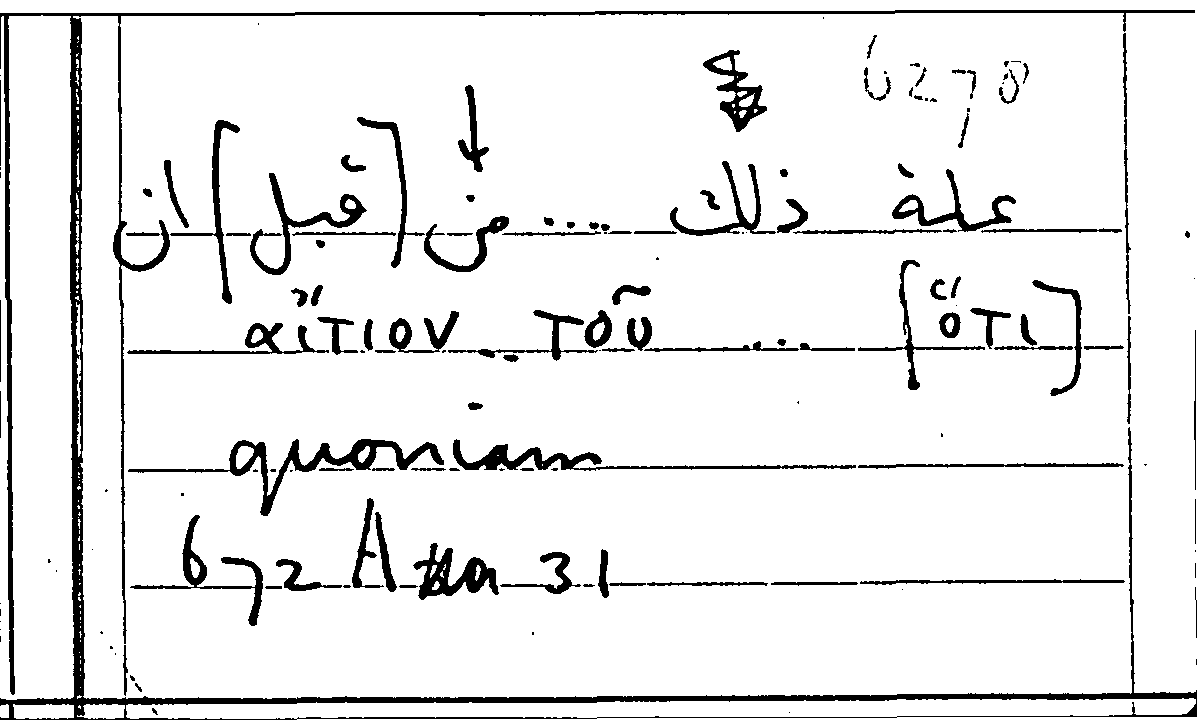 6278
علة ذلك .... من [قبل] ان
αἴτιον .. τοῦ .... [ὅτι]
quoniam
672 A a 31